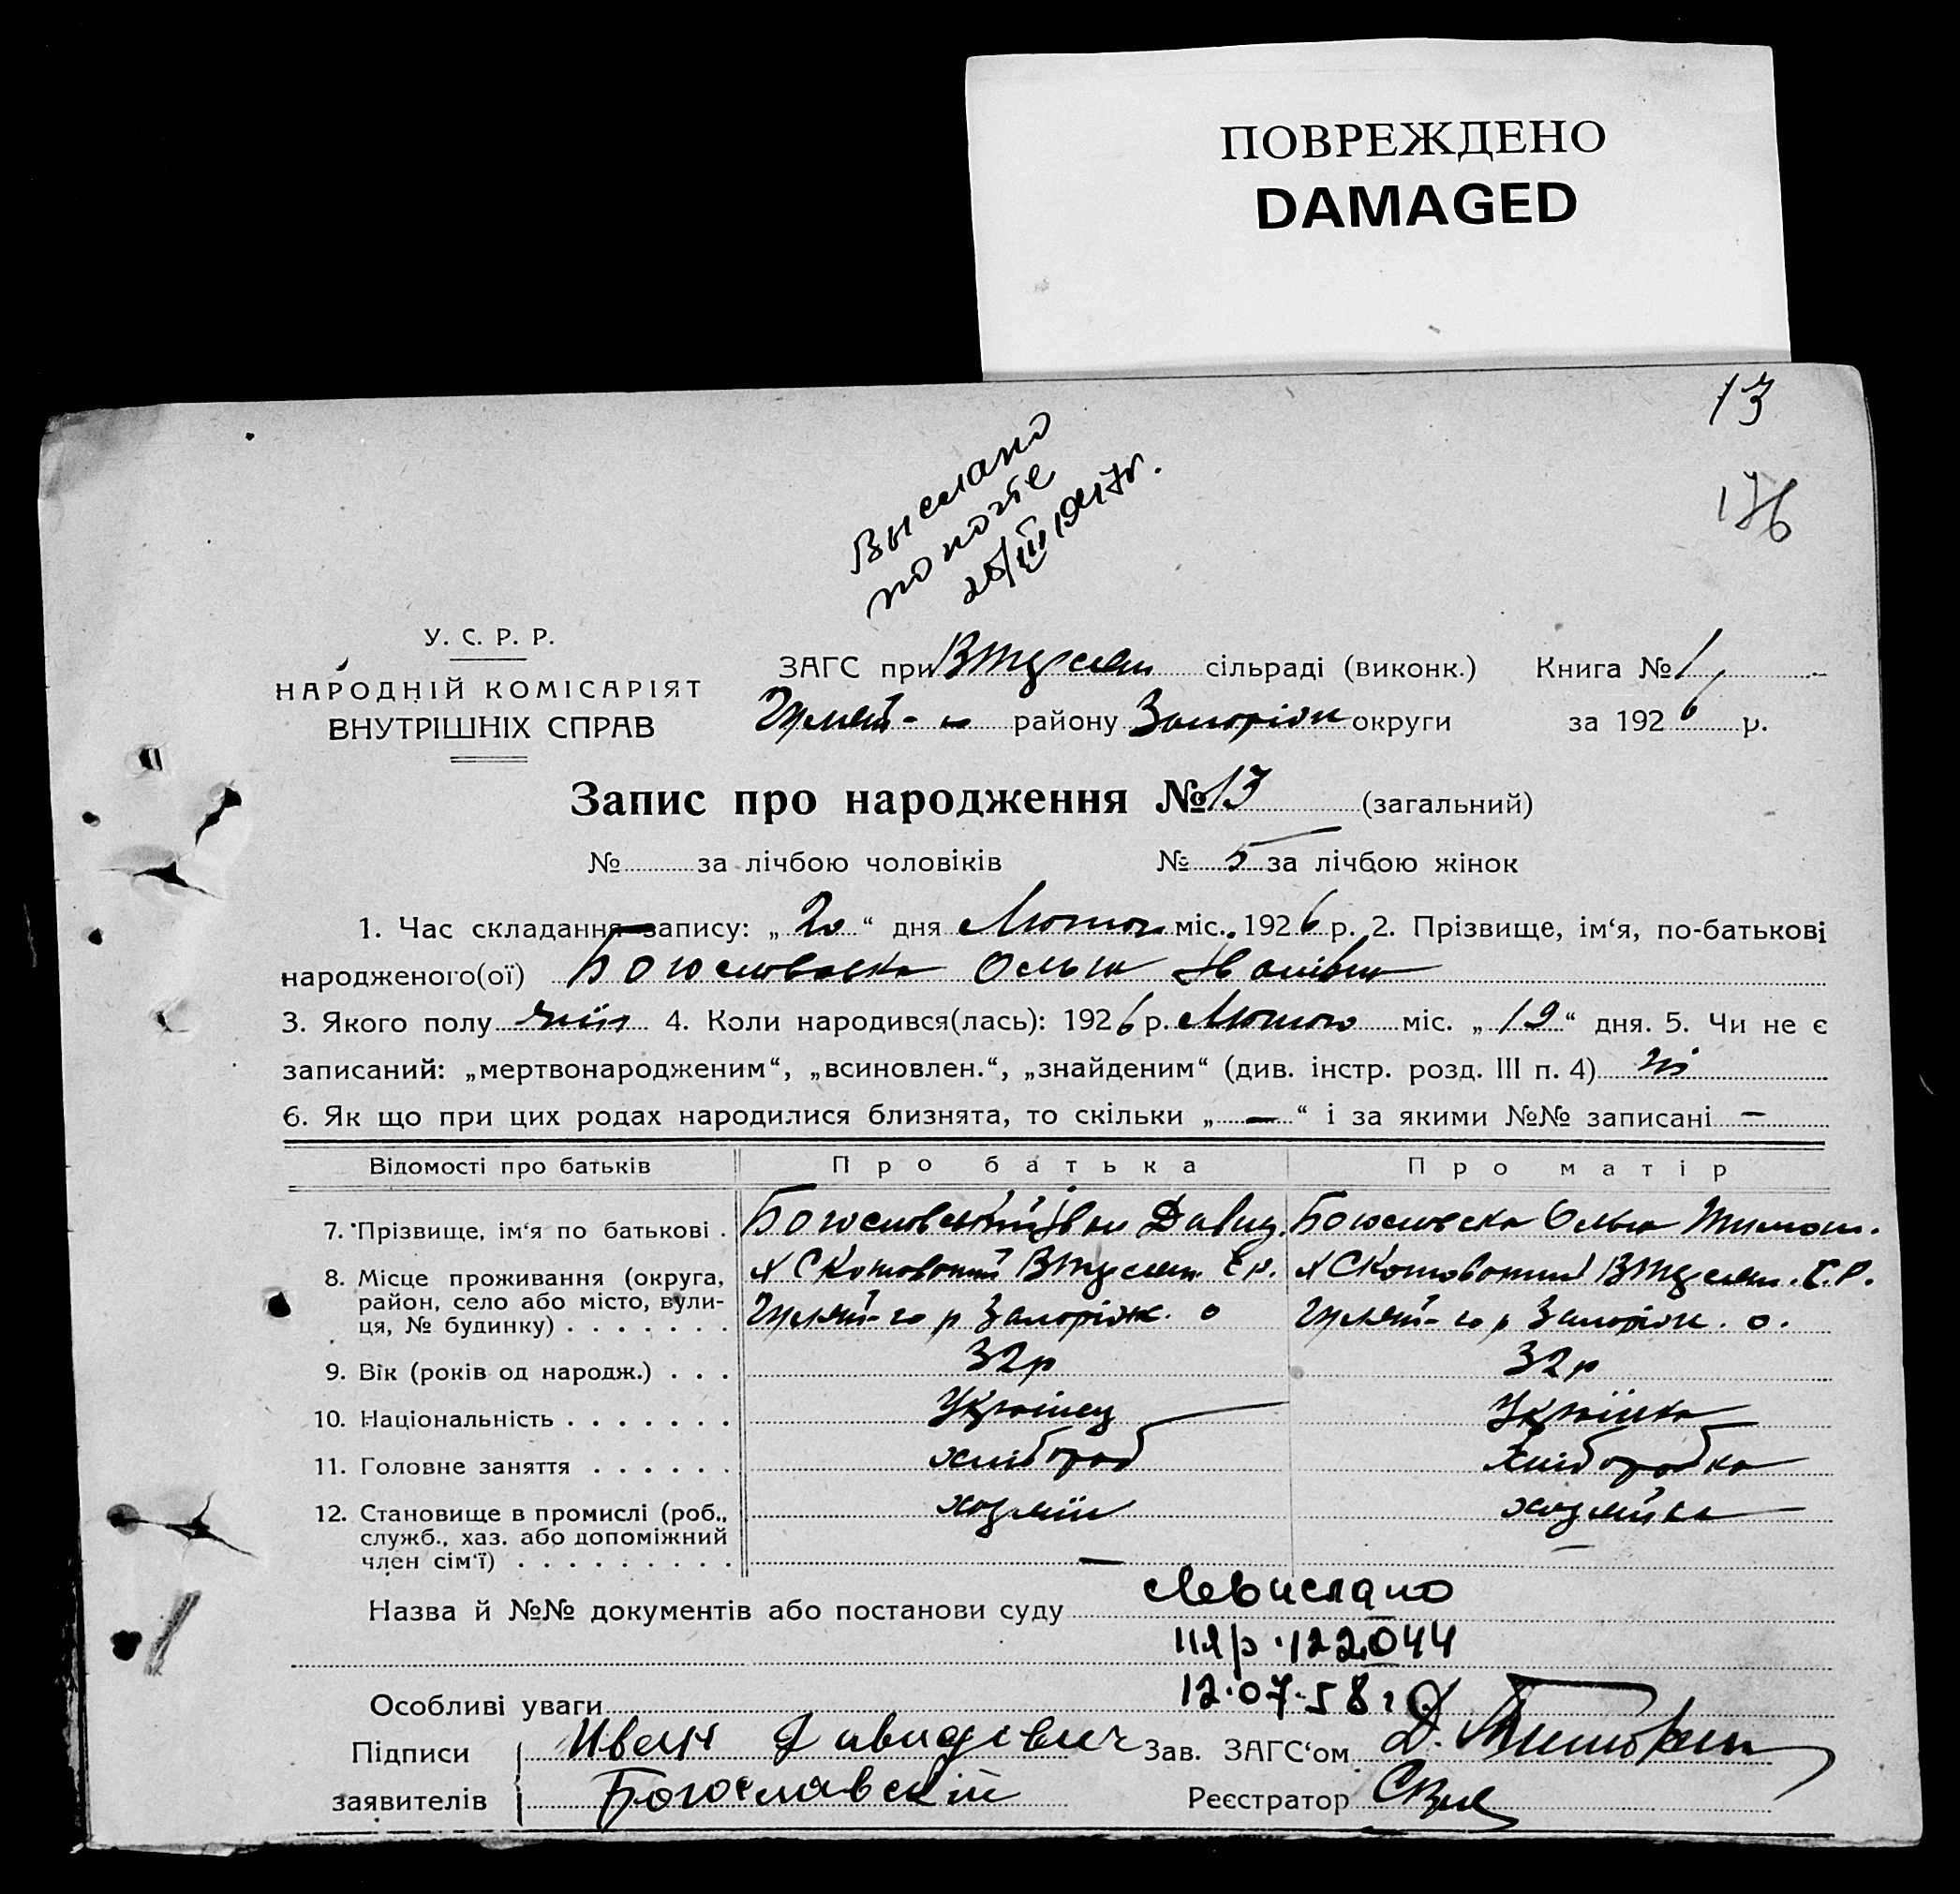 ПОВРЕЖДЕНО
DAMAGED
13
176
Выслано
по почте
25/III 1947г.
У. С. Р. Р.
НАРОДНІЙ КОМІСАРІЯТ
ВНУТРІШНІХ СПРАВ
ЗАГС при сільраді (виконк.) Книга № 1
району Запоріж округи за 1926 р.
Запис про народження № 13 (загальний)
№ за лічбою чоловіків № 5 за лічбою жінок
1. Час складання запису: „20“ дня Лютого міс. 1926 р. 2. Прізвище, ім‘я, по-батькові
народженого(ої) Богословська Ольга Іванівна
3. Якого полу жін 4. Коли народився(лась): 1926 р. Лютого міс. „19“ дня. 5. Чи не є
записаний: „мертвонародженим“, „всиновлен.“, „знайденим“ (див. інстр. розд. III п. 4) ні
6. Як що при цих родах народилися близнята, то скільки „—“ і за якими №№ записані —
Відомості про батьків Про батька Про матір
7. Прізвище, ім‘я по батькові . Богословський Іван Давид. Богословска Ольга Тимош.
8. Місце проживання (округа,
район, село або місто, вули-
ця, № будинку) . . . . . . . р Запоріж. о р Запоріж. о.
9. Вік (років од народж.) . . . 32р 32р
10. Національність . . . . . . . Українец Українка
11. Головне заняття . . . . . . хлібороб хліборобка
12. Становище в промислі (роб., хозяїн хозяйка
служб., хаз. або допоміжний
член сім‘ї) . . . . . . . . . —
Назва й №№ документів або постанови суду
122044
Особливі уваги 12.07.58 г
Підписи Иван Давидович Зав. ЗАГС‘ом Д.
заявителів Богославскій Реєстратор